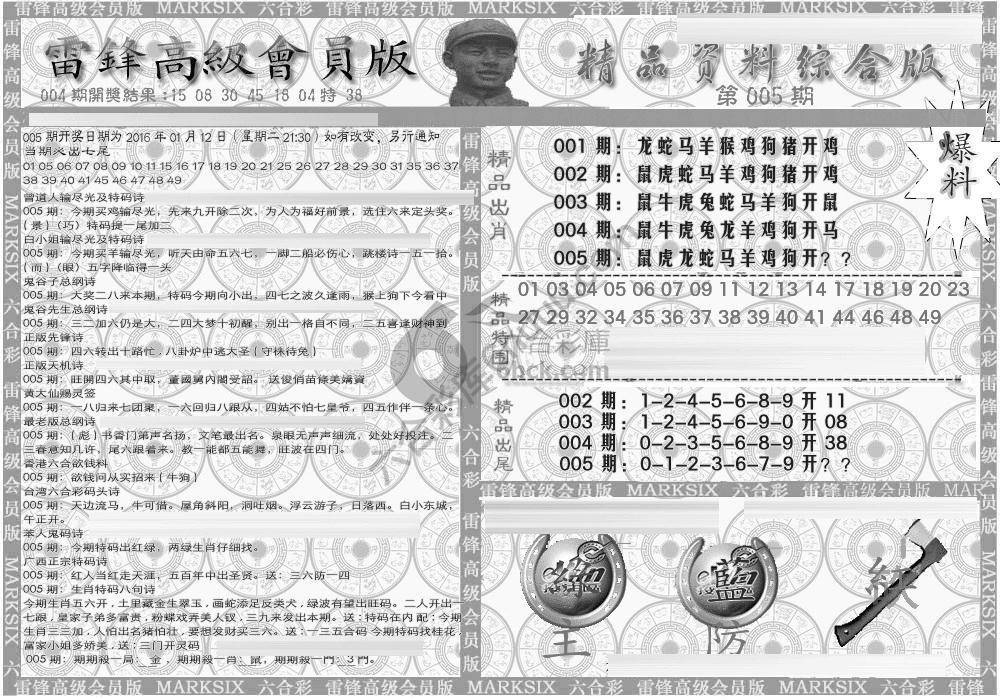 雷锋高级会员版 MARKSIX 六合彩 雷锋高级会员版 MARKSIX 六合彩 雷锋高级会员版 MARKSIX 六合彩 雷锋高级会员版
雷鋒高級會員版
精品资料综合版
004期開獎結果:15 08 30 45 18 04特 38
第 005 期
005 期开奖日期为 2016 年 01 月 12 日（星期二 21:30）如有改变，另行通知
当期火出七尾
01 05 06 07 08 09 10 11 15 16 17 18 19 20 21 25 26 27 28 29 30 31 35 36 37
38 39 40 41 45 46 47 48 49
曾道人输尽光及特码诗
005 期：今期买鸡输尽光，先来九开除二次，为人为福好前景，选住六来定头奖。
{ 景 }（巧）特码提一尾加二
白小姐输尽光及特码诗
005 期：今期买羊输尽光，听天由命五六七，一脚二船必伤心，跳楼诗一五一拾。
{ 而 }（眼）五字降临得一头
鬼谷子总纲诗
005 期：大奖二八来本期，特码今期向小出，四七之波久逢雨，猴上狗下今看中
鬼谷先生总纲诗
005 期：三二加六仍是大，二四大梦十初醒，别出一格自不同，三五喜逢财神到
正版先锋诗
005 期：四六转出十路忙，八卦炉中逃大圣｛守株待兔｝
正版天机诗
005 期：旺開四六其中取，董國舅內閣受詔。送俊俏苗條美嬌資
黄大仙赐灵签
005 期：一八归来七团聚，一六回归八跟从，四姑不怕七皇爷，四五作伴一条心。
最老版总纲诗
005 期：{ 彪 } 书香门第声名扬，文笔最出名。泉眼无声声细流，处处好投注。二
三春意知几许，尾六跟着来。教一能都五能舞，旺波在四门。
香港六合欲钱料
005 期：欲钱问从实招来 { 牛狗 }
台湾六合彩码头诗
005 期：天边流马，牛可借。屋角斜阳，洞吐烟。浮云游子，日落西。白小东城，
午正开。
苯人鬼码诗
005 期：今期特码出红绿，两绿生肖仔细找。
广西正宗特码诗
005 期：红人当红走天涯，五百年中出圣贤。送：三六防一四
005 期：生肖特码八句诗
今期生肖五六开，土里藏金生翠玉，画蛇添足反类犬，绿波有望出旺码。二人开出一
七跟，皇家子弟多富贵，粉蝶戏弄美人钗，三九来发出本期。送：特码在内 配：今期
生肖三三加，人怕出名猪怕壮，要想发财买三六。送：一三五合码 今期特码找桂花
富家小姐多娇美，送：三门开灵码
005 期：期期殺一局：_金，期期殺一肖：鼠，期期殺一門：3 門。
精品出肖
001 期：龙蛇马羊猴鸡狗猪开鸡
002 期：鼠虎蛇马羊鸡狗猪开鸡
003 期：鼠牛虎兔蛇马羊狗开鼠
004 期：鼠牛虎兔龙羊鸡狗开马
005 期：鼠虎龙蛇马羊鸡狗开？？
爆料
精品特围
01 03 04 05 06 07 09 11 12 13 14 17 18 19 20 23
27 29 32 34 35 36 37 38 39 40 41 44 46 48 49
精品出尾
002 期：1-2-4-5-6-8-9 开 11
003 期：1-2-4-5-6-9-0 开 08
004 期：0-2-3-5-6-8-9 开 38
005 期：0-1-2-3-6-7-9 开？？
雷锋高级会员版 MARKSIX 六合彩 雷锋高级会员版 MARKSIX 六合彩
主
防
雷锋高级会员版 MARKSIX 六合彩 雷锋高级会员版 MARKSIX 六合彩 雷锋高级会员版 MARKSIX 六合彩 雷锋高级会员版